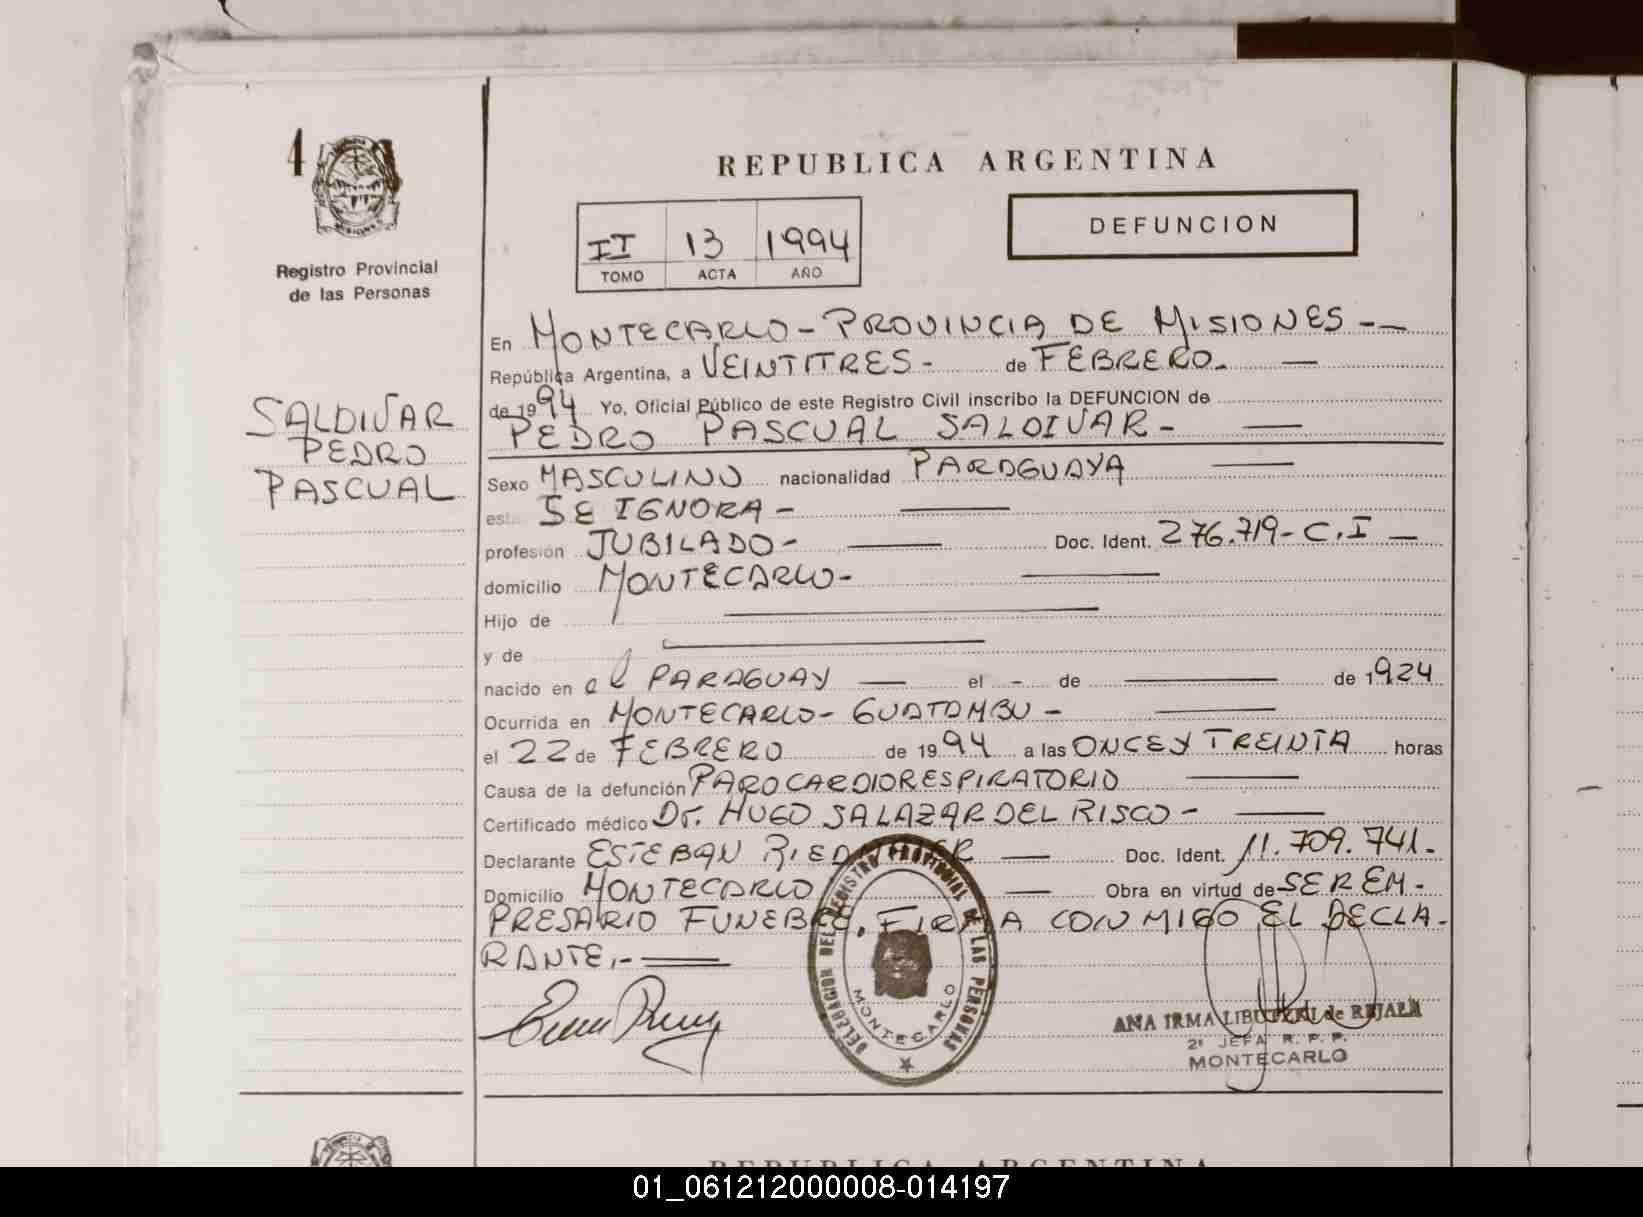 4
REPUBLICA ARGENTINA
DEFUNCION
II 13 1994
TOMO ACTA AÑO
Registro Provincial
de las Personas
SALDIVAR
PEDRO
PASCUAL
En MONTECARLO - PROVINCIA DE MISIONES --
República Argentina, a VEINTITRES - de FEBRERO.- —
de 1994 Yo, Oficial Público de este Registro Civil inscribo la DEFUNCION de
PEDRO PASCUAL SALDIVAR - —
Sexo MASCULINO nacionalidad PARAGUAYA —
est. SE IGNORA - —
profesión JUBILADO - — Doc. Ident. 276.719- C.I —
domicilio MONTECARLO- —
Hijo de —
y de —
nacido en el PARAGUAY — el - de — de 1924
Ocurrida en MONTECARLO - GUATAMBU - —
el 22 de FEBRERO de 1994 a las ONCE Y TREINTA horas
Causa de la defunción PAROCARDIORESPIRATORIO —
Certificado médico Dr. HUGO SALAZAR DEL RISCO - —
Declarante ESTEBAN — Doc. Ident. 11.709.741.-
Domicilio MONTECARLO — Obra en virtud de SER EM-
PRESARIO FUNEBRE. FIRMA CONMIGO EL DECLA-
RANTE.- —
DELEGACION DEL REGISTRO PROVINCIAL DE LAS PERSONAS
MONTECARLO
ANA IRMA de REJALA
2ª JEFA R. P. P.
MONTECARLO
REPUBLICA ARGENTINA
01_061212000008-014197